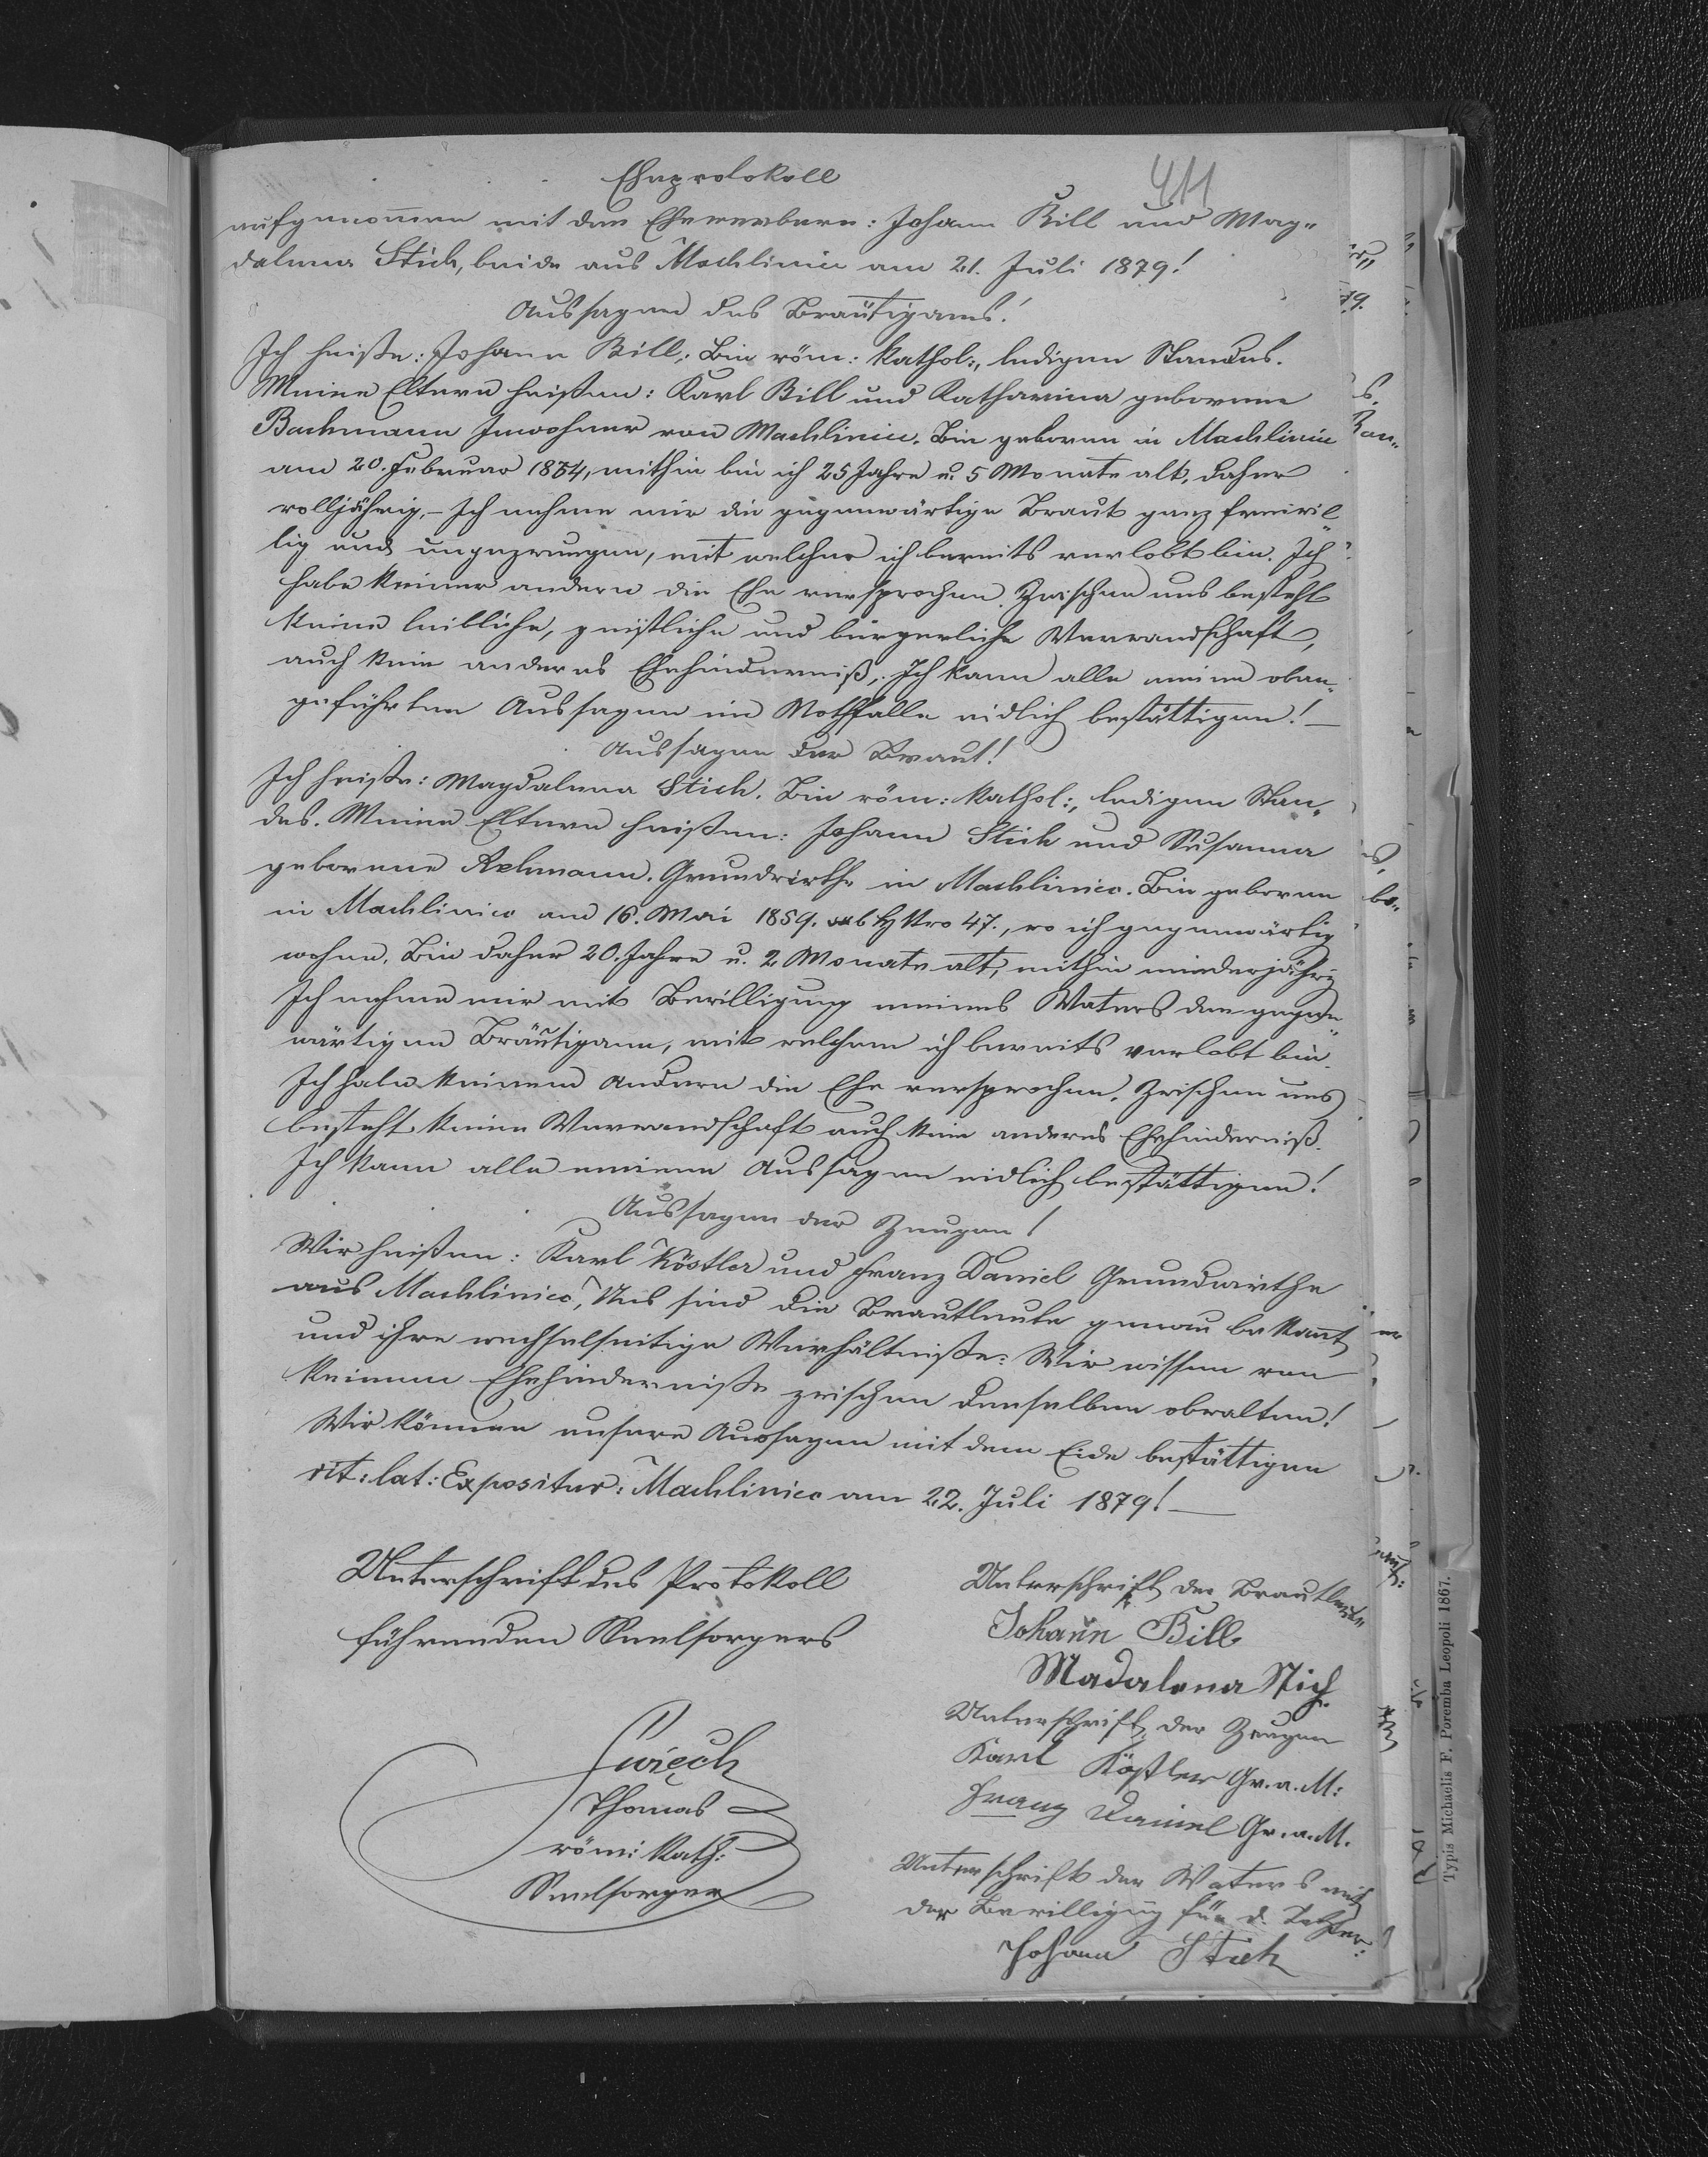 411
Eheprotokoll
aufgenommen mit den Ehewerbern: Johann Bill und Mag„
dalena Stich, beide aus Machlinice am 21. Juli 1879!
Aussagen des Bräutigams!
Ich heiße: Johann Bill, Bin röm: kathol:, ledigen Standes.
Meine Eltern heißen: Karl Bill und Katharina geborene
Bachmann Inwohner von Machlinice. Bin geboren in Machlinice
am 20. Februar 1854, mithin bin ich 25 Jahre u. 5 Monate alt, daher
volljährig. – Ich nehme mir die gegenwärtige Braut ganz freiwil„
lig und ungezwungen, mit welcher ich bereits verlobt bin. Ich
habe keiner andern die Ehe versprochen. Zwischen uns besteht
keine leibliche, geistliche und bürgerliche Verwandschaft,
auch kein anderes Ehehinderniß. Ich kann alle meine oban„
geführten Aussagen im Nothfalle eidlich bestättigen! –
Aussagen der Braut!
Ich heiße: Magdalena Stich. Bin röm: kathol:, ledigen Stan„
des. Meine Eltern heißen: Johann Stich und Susanna
geborene Axmann. Grundwirthe in Machlinice. Bin geboren
in Machlinice am 16. Mai 1859. sub Nro 47., wo ich gegenwärtig
wohne. Bin daher 20. Jahre u. 2 Monate alt, mithin minderjährig
Ich nehme mir mit Bewilligung meines Vaters den gegen„
wärtigen Bräutigam, mit welchem ich bereits verlobt bin.
Ich habe keinem Andern die Ehe versprochen. Zwischen uns
besteht keine Verwandschaft auch kein anderes Ehehinderniß.
Ich kann alle meine Aussagen eidlich bestättigen!
Aussagen der Zeugen!
Wir heißen: Karl Köstler und Franz Daniel Grundwirthe
aus Machlinice, Uns sind die Brautleute genau bekannt
und ihre wechselseitige Verhältniße. Wir wissen von
keinem Ehehinderniße zwischen denselben obwalten!
Wir können unsere Aussagen mit dem Eide bestättigen
rit: lat: Expositur: Machlinice am 22. Juli 1879! –
Unterschrift des Protokoll
führenden Seelsorgers
Świéch
Thomas
röm: kath:
Seelsorger
Unterschrift der Brautleute
Johann Bill
Madalena Stich
Unterschrift der Zeugen
Karl Köstler Gr. a. M:
Franz Daniel Gr. a. M.
Unterschrift des Vaters mit
der Bewilligung für d. Tochter:
Johann Stich
Typis Michaelis F. Poremba Leopoli 1867.